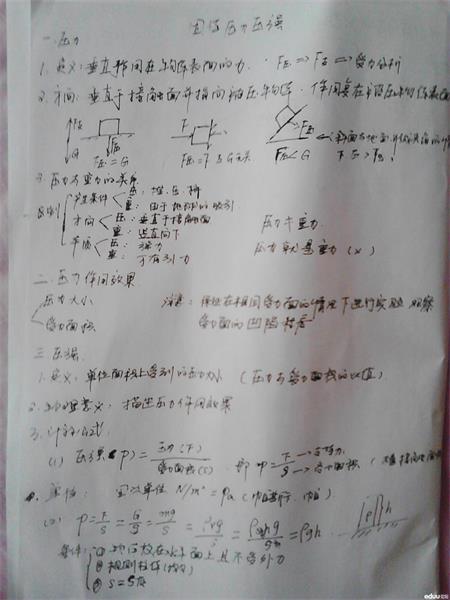 固体压力压强
一.压力
1.定义:垂直作用在物体表面的力. F压 => F支 => 受力分析
2.方向:垂直于接触面并指向被压物体.作用点在被压物体表面
F支 G F压 F压=G
F F压=F 与G无关
F压 F压<G
3.压力与重力的关系
区别
产生条件 压:推.压.挤
重:由于地球的吸引
方向 压:垂直于接触面
重:竖直向下
性质 压:弹力
重:万有引力
压力≠重力
压力就是重力(×)
二.压力作用效果
压力大小
受力面积
注意:保证在相同受力面的情况下进行实验.观察
受力面的凹陷
三.压强
1.定义:单位面积上受到的压力大小(压力与受力面积的比值)
2.物理意义:描述压力作用效果
3.计算公式
(1)压强(P)=压力(F)/受力面积(S) 即P=F/S
单位:国际单位 N/m²=Pa(帕斯卡.帕)
(2) P=F/S=G/S=mg/S=ρvg/S=ρshg/S=ρgh
条件:①物体放在水平面上且不受外力
②规则柱体(均匀)
③
eduu